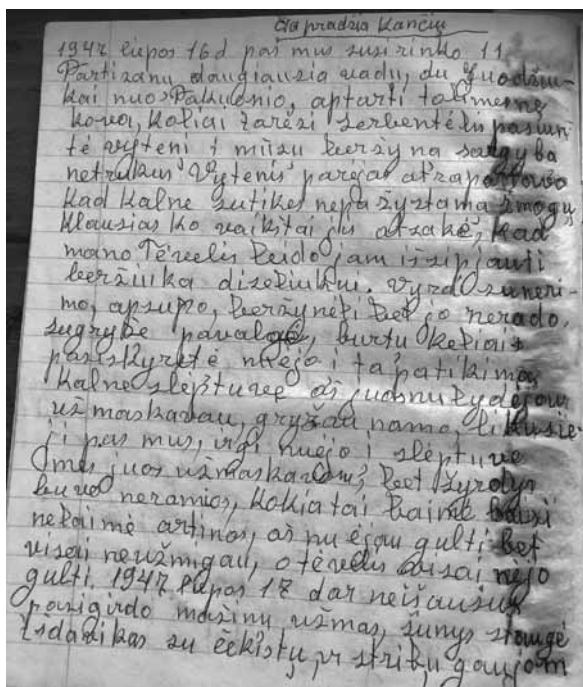 čia pradžia Kančių
1947 liepos 16d pas mus susirinko 11
Partizanu daugiausia vadu, du Juodžiu-
kai nuo Pakuonio, aptarti tolimesnę
kova, keliai žarėsi serbentėlis pasiun
tė vytenį į mūsu beržyna sargyba
netrukus Vytenis parėjas atraportavo
kad kalne sutikęs nepažystama žmogų
klausias ko vaikštai jis atsakė, kad
mano Tėvelis leido jam issipjauti
beržiuka diseliukui. vyrai suneri-
mo, apsupo, beržynėli bet jo nerado,
sugrybę pavalgė, burtu keliais
pasiskyrstė nuėjo i ta patikima
Kalne slėptuvę aš juos nulydėjau
užmaskavau, gryžau namo, likusie-
ji pas mus, irgi nuėjo i slėptuve
Omes juos užmaskavom, bet žyrdys
buvo neramios, kokia tai baimė baisi
nelaimė artinos, aš nuėjau gulti bet
visai neužmigau, o tėvelis visai nėjo
gulti. 1947 liepos 17 dar neišaušus
pasigirdo mašinu užmas, šunys staugė
Isdavikas su čėkistų pr stribu gaujom